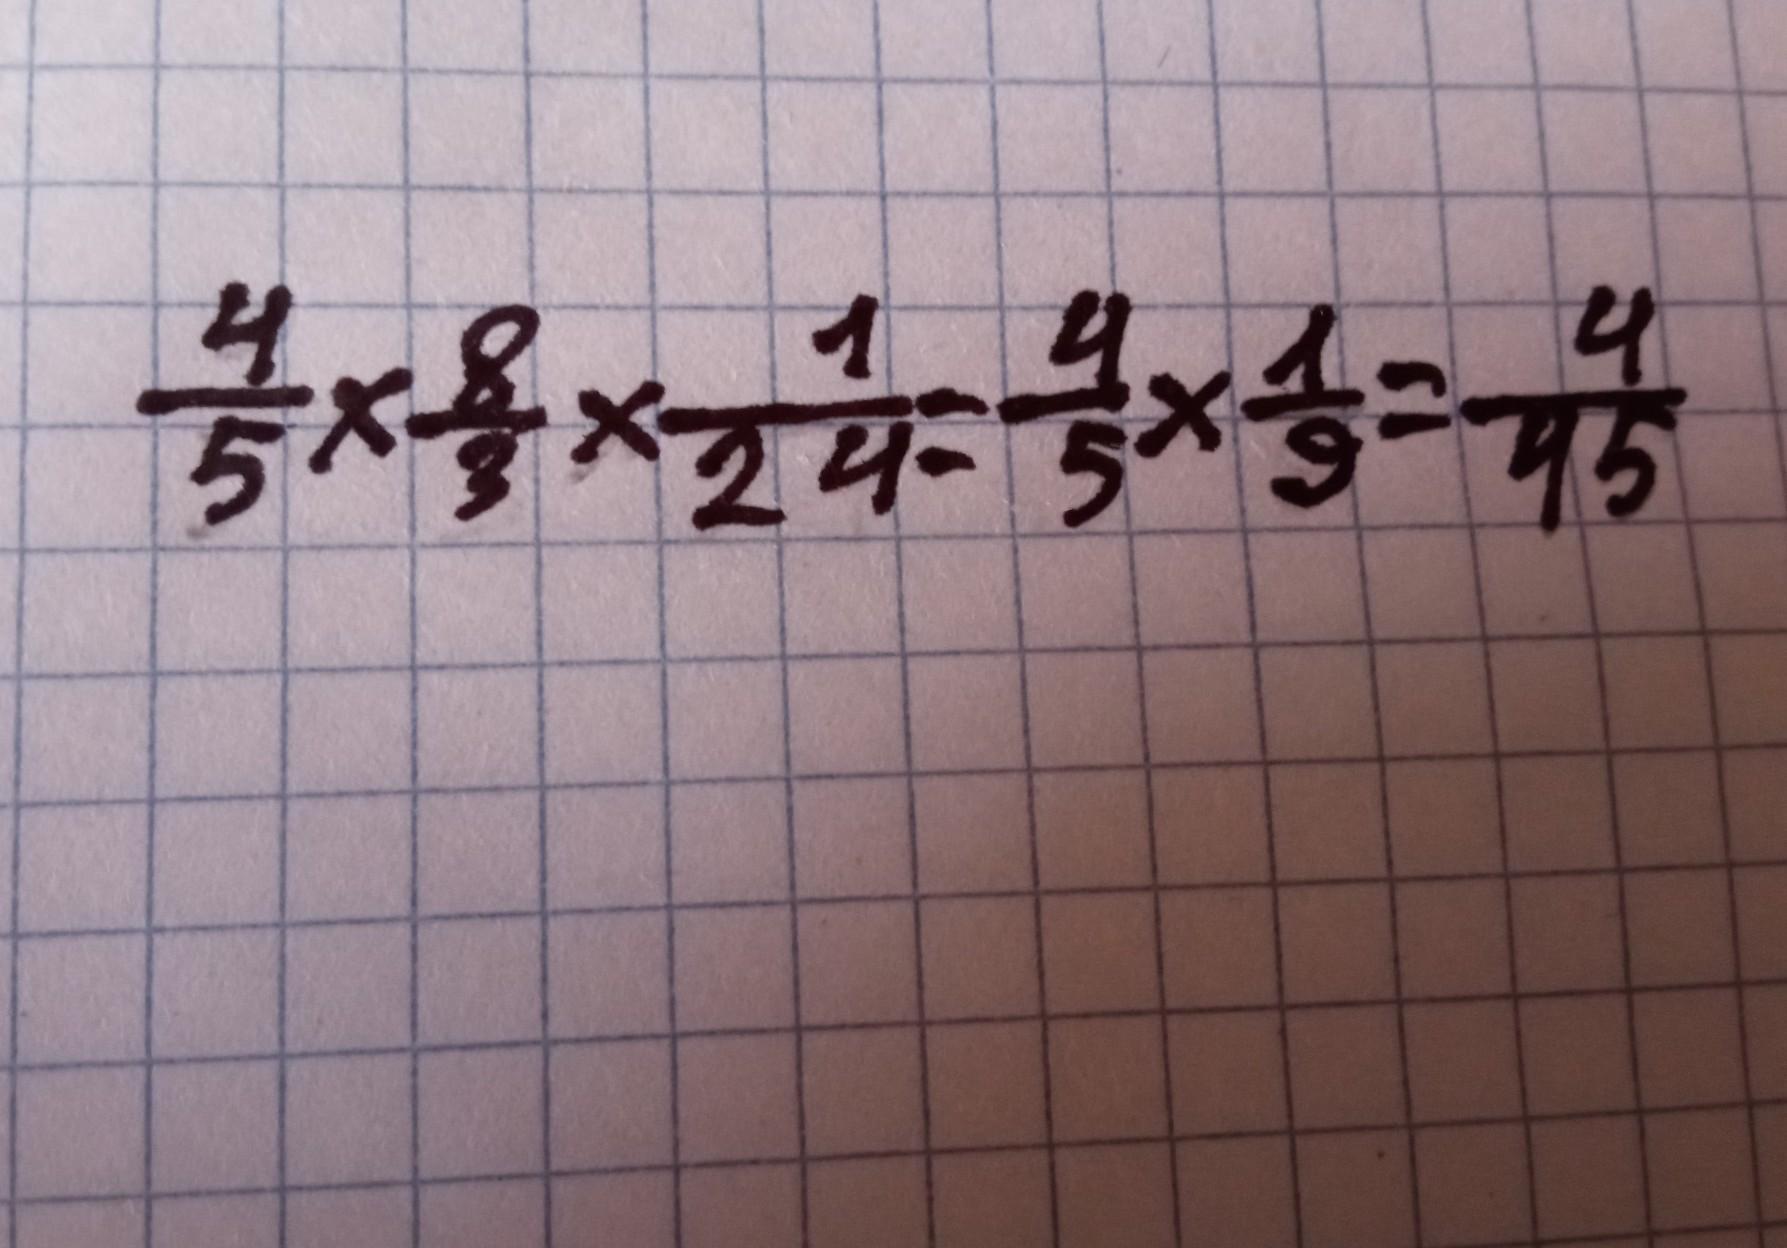 4/5 × 8/3 × 1/24 = 4/5 × 1/9 = 4/45